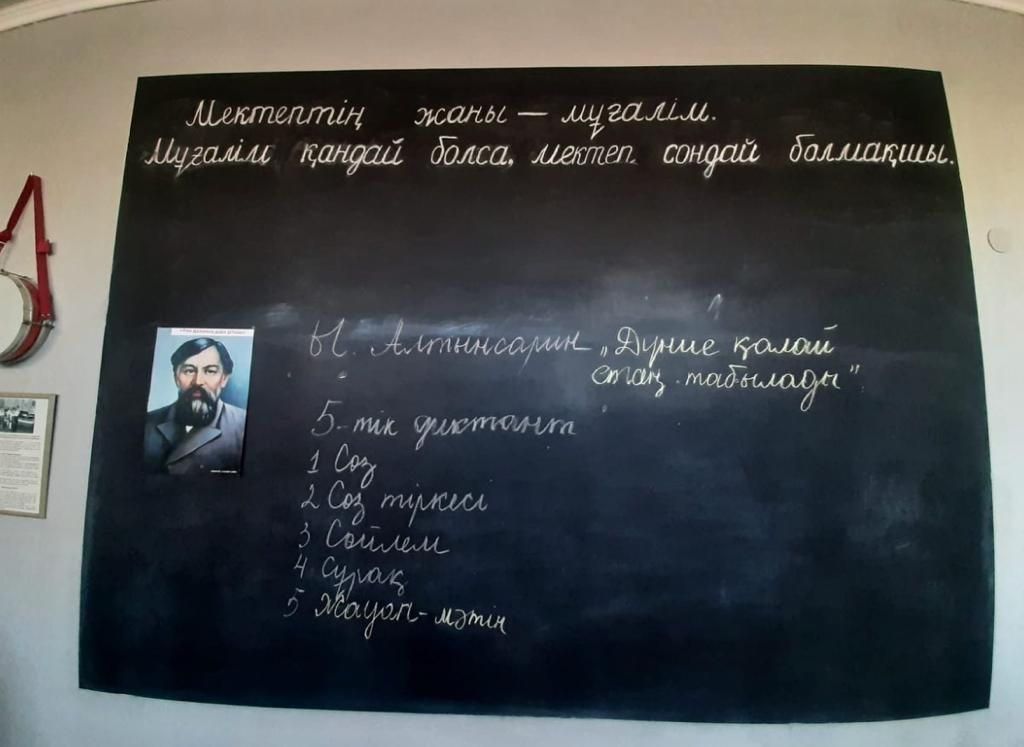 Мектептің жаны — мұғалім.
Мұғалім қандай болса, мектеп сондай болмақшы.
Ы. Алтынсарин „Дүние қалай
етсең табылады"
5-тік диктант
1 Сөз
2 Сөз тіркесі
3 Сөйлем
4 Сұрақ
5 Жауап-мәтін